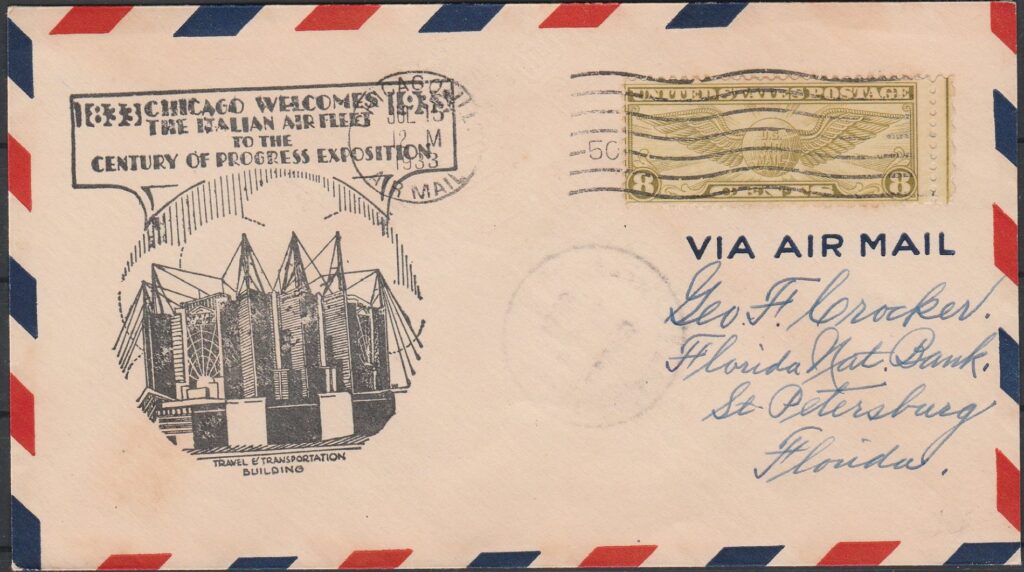 1833 CHICAGO WELCOMES 1933
THE ITALIAN AIR FLEET
TO THE
CENTURY OF PROGRESS EXPOSITION
TRAVEL & TRANSPORTATION
BUILDING
CHICAGO, ILL.
JUL 15
12 M
1933
AIR MAIL
5C
UNITED STATES POSTAGE
8 CENTS 8
VIA AIR MAIL
Geo. F. Crocker.
Florida Nat. Bank.
St Petersburg
Florida.